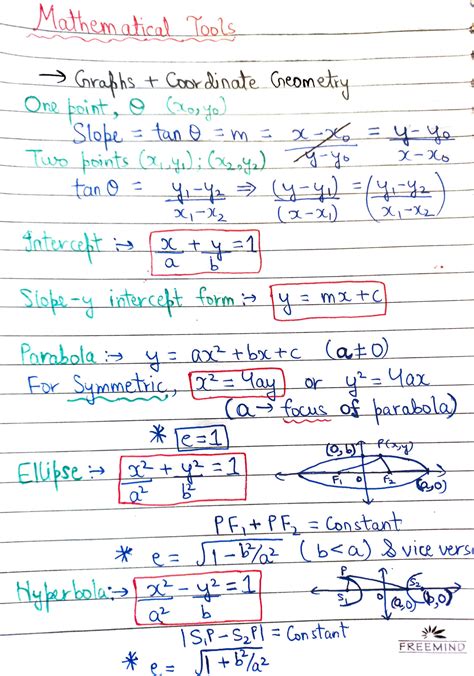 Mathematical Tools
→ Graphs + Coordinate Geometry
One point, θ (x₀,y₀)
Slope = tan θ = m = x-x₀/y-y₀ = y-y₀/x-x₀
Two points (x₁,y₁);(x₂,y₂)
tan θ = y₁-y₂/x₁-x₂ ⇒ (y-y₁)/(x-x₁) = (y₁-y₂/x₁-x₂)
Intercept :→ x/a + y/b = 1
Slope-y intercept form :→ y = mx+c
Parabola :→ y = ax²+bx+c (a≠0)
For Symmetric, x²=4ay or y²=4ax
(a→ focus of parabola)
* e=1
(0,b) P(x,y)
Ellipse :→ x²/a² + y²/b² = 1
F₁ O F₂ (a,0)
PF₁ + PF₂ = Constant
* e = √1-b²/a² (b<a) & vice vers
Hyperbola :→ x²/a² - y²/b = 1
P S₁ O S₂ (a,0) (b,0)
|S₁P - S₂P| = Constant
* e = √1+b²/a²
FREEMIND